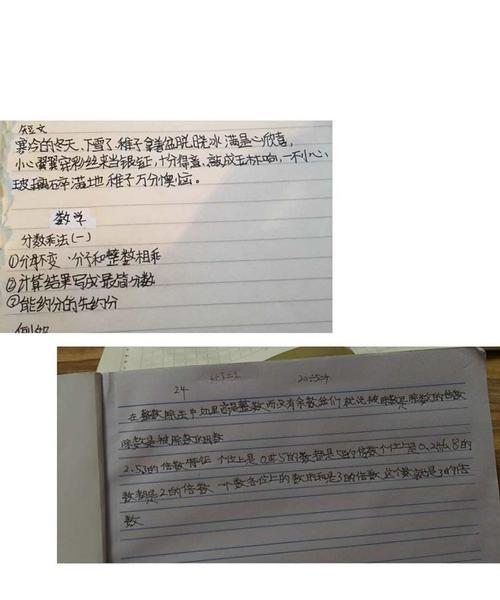 短文
寒冷的冬天,下雪了,稚子拿着盆脱晓冰满是心欣喜,
小心翼翼穿彩丝来当银钲,十分得意,敲成玉林响,一不小心,
玻璃碎满地稚子万分懊恼。
数学
分数乘法(一)
①分母不变,分子和整数相乘
②计算结果写成最简分数
③能约分的先约分
例如
24
在整数除法中如果商是整数而没有余数我们就说被除数是除数的倍数
除数是被除数的因数
2.5.3的倍数特征 个位上是0或5的数都是5的倍数个位上是0.2.4.6.8的
数都是2的倍数 一个数各位上的数的和是3的倍数 这个数就是3的倍
数